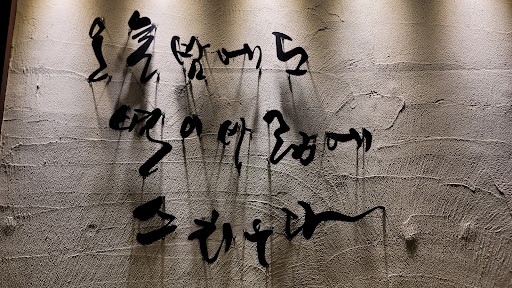 오늘 밤에도
별이 바람에
스치우다